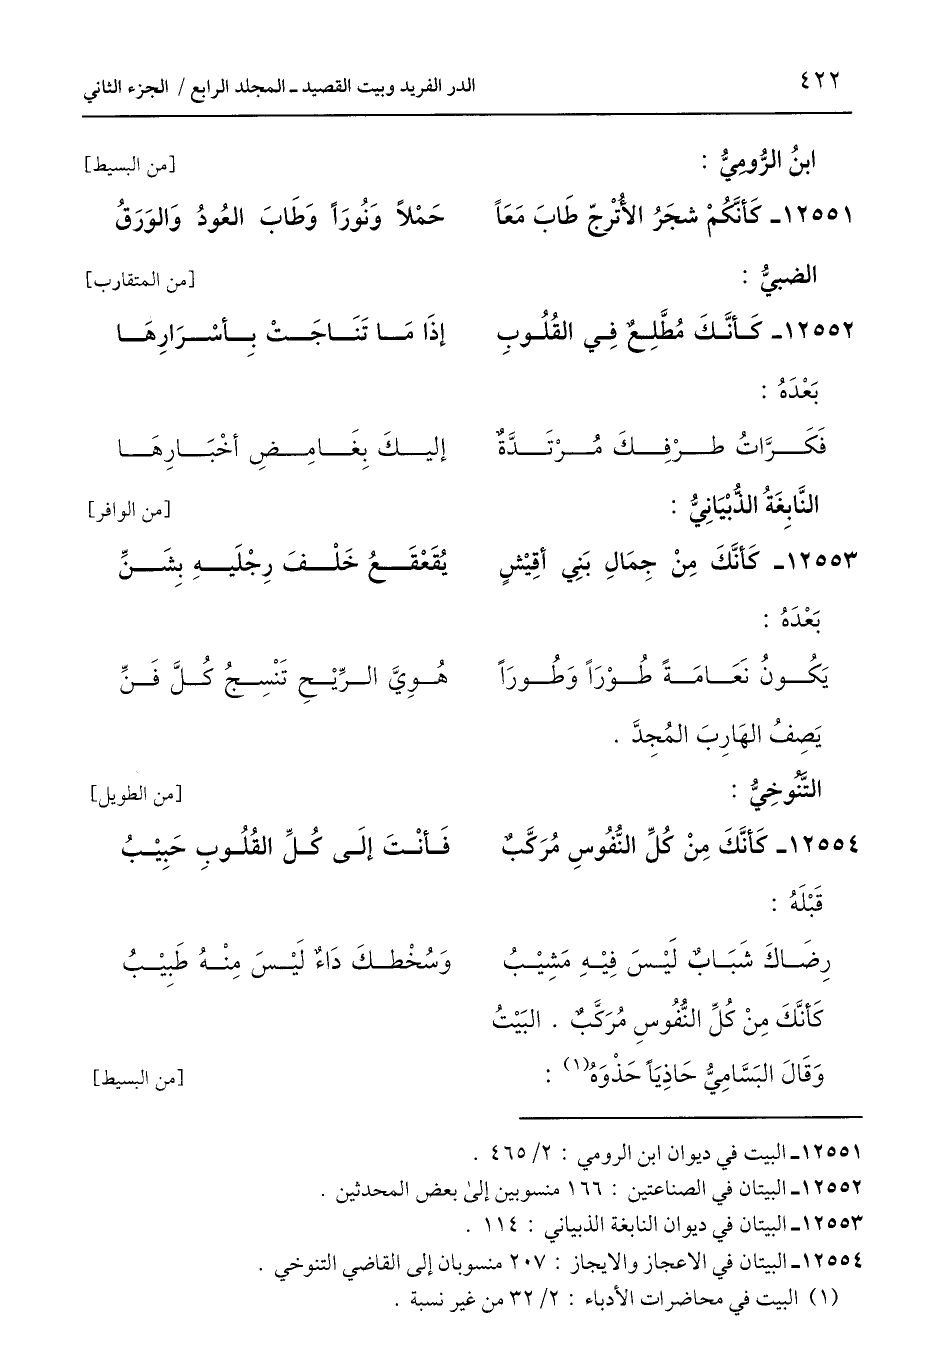 ٤٢٢ الدر الفريد وبيت القصيد ـ المجلد الرابع / الجزء الثاني
ابنُ الرُّومِيُّ : [من البسيط]
١٢٥٥١ـ كَأنَّكُمْ شجَرُ الأُتْرجّ طَابَ مَعَاً حَمْلاً وَنُورَاً وَطَابَ العُودُ وَالوَرَقُ
الضبيُّ : [من المتقارب]
١٢٥٥٢ـ كَـأنَّـكَ مُطَّلِـعٌ فِـي القُلُـوبِ إذَا مَـا تَنَـاجَـتْ بِـأسْـرَارِهَـا
بَعْدَهُ :
فَكَـرَّاتُ طـرْفِـكَ مُـرْتَـدَّةٌ إليـكَ بِغَـامِـضِ أخْبَـارِهَـا
النَّابِغَةُ الذُّبْيَانِيُّ : [من الوافر]
١٢٥٥٣ـ كَأنَّكَ مِنْ جِمَالِ بَنِي أقِيْشٍ يُقَعْقَـعُ خَلْـفَ رِجْلَيـهِ بِشَـنِّ
بَعْدَهُ :
يَكُـونُ نَعَـامَـةً طُـوْرَاً وَطُـورَاً هُـوِيَّ الـرِّيْـحِ تَنْسِـجُ كُـلَّ فَـنِّ
يَصِفُ الهَارِبَ المُجِدَّ .
التَّنُوخِيُّ : [من الطويل]
١٢٥٥٤ـ كَأنَّكَ مِنْ كُلِّ النُّفُوسِ مُرَكَّبٌ فَـأنْـتَ إلَـى كُـلِّ القُلُـوبِ حَبِيْـبُ
قَبْلَهُ :
رِضَـاكَ شَبَـابٌ لَيْـسَ فِيْـهِ مَشِيْـبُ وَسُخْطـكَ دَاءٌ لَيْـسَ مِنْـهُ طَبِيْـبُ
كَأنَّكَ مِنْ كُلِّ النُّفُوسِ مُرَكَّبٌ . البَيْتُ
وَقَالَ البَسَّامِيُّ حَاذِيَاً حَذْوَهُ(١) : [من البسيط]
١٢٥٥١ـ البيت في ديوان ابن الرومي : ٢/ ٤٦٥ .
١٢٥٥٢ـ البيتان في الصناعتين : ١٦٦ منسوبين إلىٰ بعض المحدثين .
١٢٥٥٣ـ البيتان في ديوان النابغة الذبياني : ١١٤ .
١٢٥٥٤ـ البيتان في الاعجاز والايجاز : ٢٠٧ منسوبان إلى القاضي التنوخي .
(١) البيت في محاضرات الأدباء : ٢/ ٣٢ من غير نسبة .